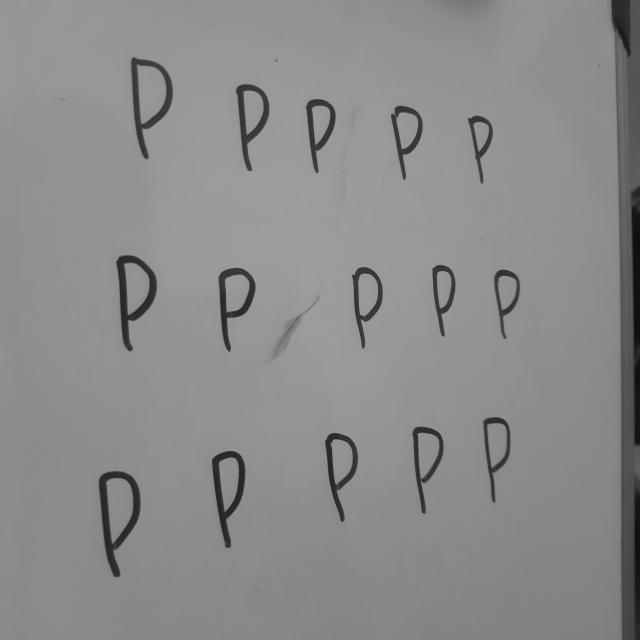 P P P P P
P P P P P
P P P P P